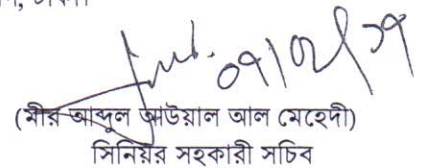 ০৭/০২/১৭
(মীর আব্দুল আউয়াল আল মেহেদী)
সিনিয়র সহকারী সচিব